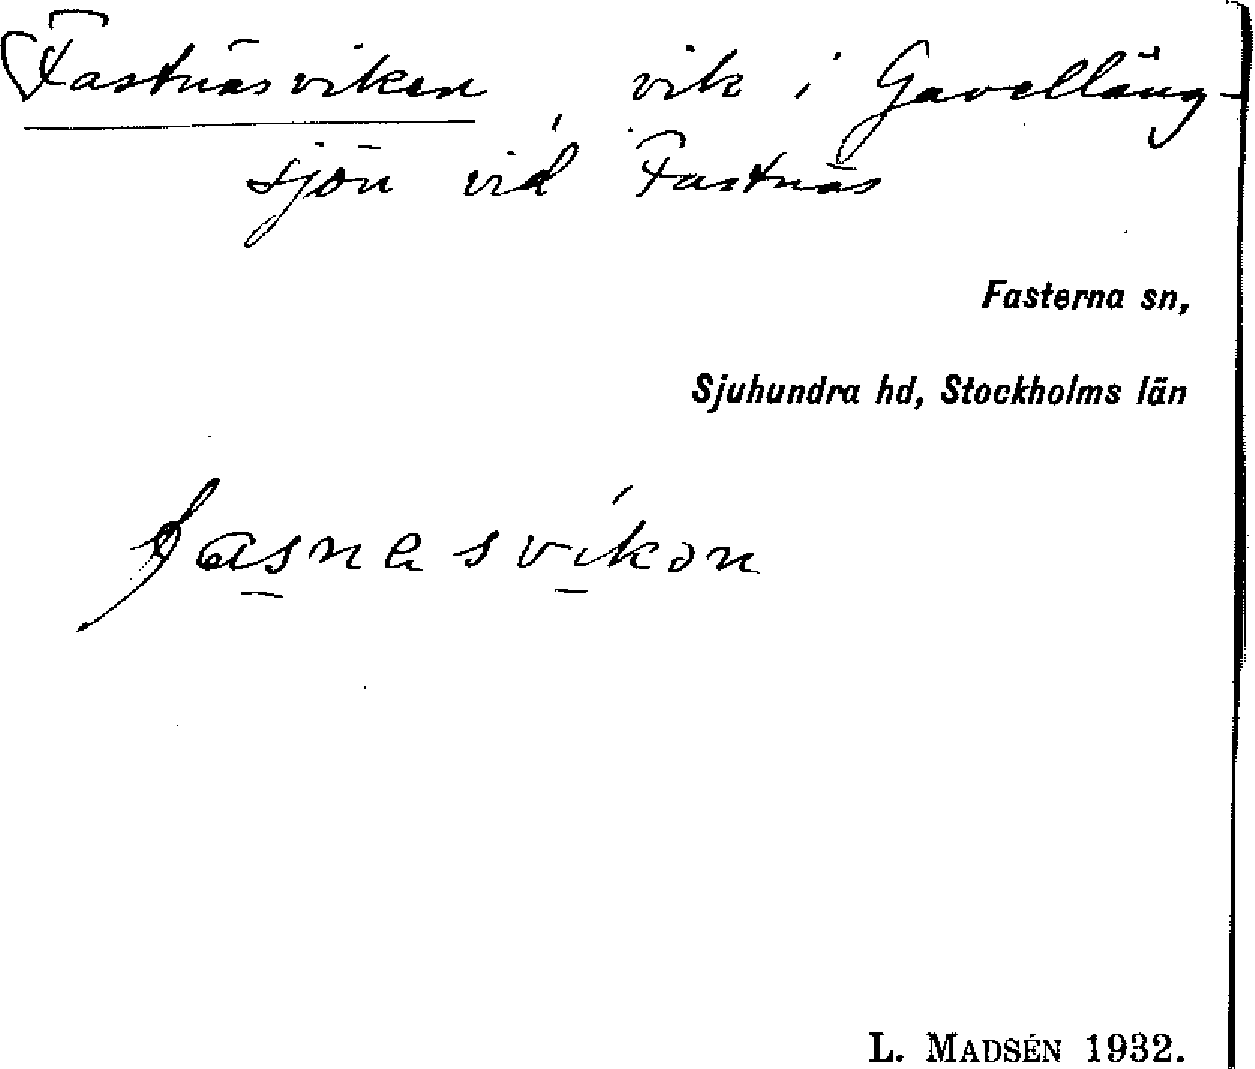 Fastnäsviken, vik i Gavelläng-
sjön vid Fastnäs
Fasterna sn,
Sjuhundra hd, Stockholms län
fasnasvikən
L. MADSÉN 1932.